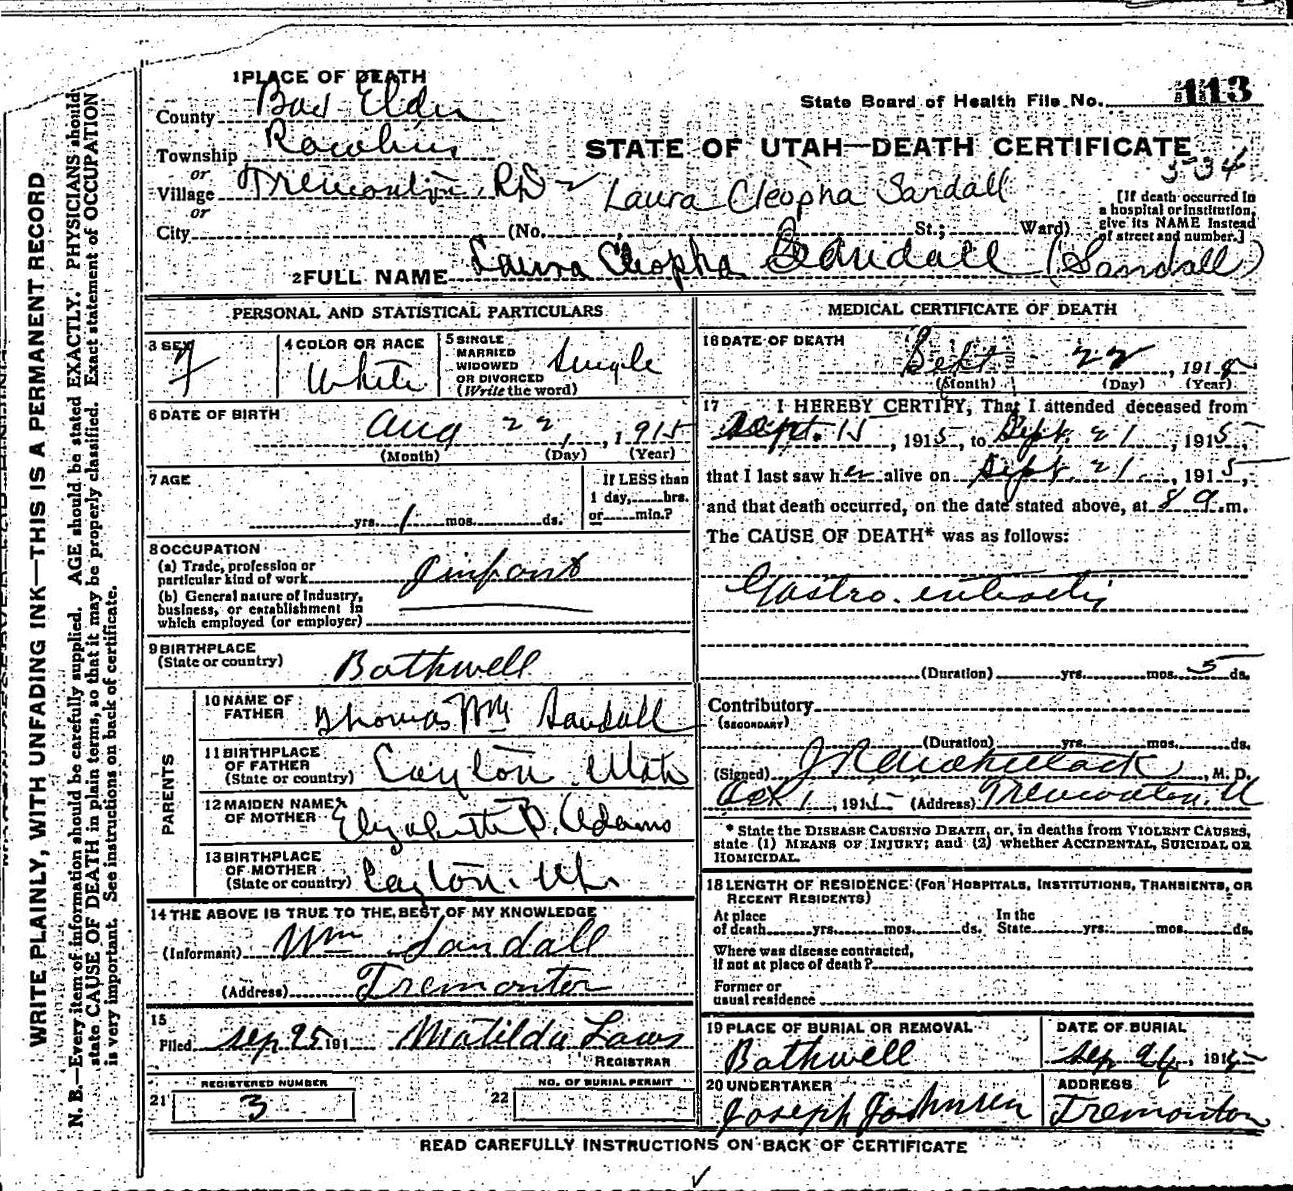 1 PLACE OF DEATH
County Box Elder
Township
or
Village Tremonton RD 2
or
City (No. St.; Ward)
State Board of Health File No. 113
STATE OF UTAH—DEATH CERTIFICATE
534
Laura Cleopha Sandall
[If death occurred in
a hospital or institution,
give its NAME instead
of street and number.]
2 FULL NAME Laura Cleopha Sandall (Sandall)
PERSONAL AND STATISTICAL PARTICULARS
3 SEX F
4 COLOR OR RACE White
5 SINGLE
MARRIED
WIDOWED
OR DIVORCED
(Write the word) Single
6 DATE OF BIRTH
Aug 22, 1915
(Month) (Day) (Year)
7 AGE
yrs. 1 mos. ds.
If LESS than
1 day, hrs.
or min.?
8 OCCUPATION
(a) Trade, profession or
particular kind of work Infant
(b) General nature of Industry,
business, or establishment in
which employed (or employer)
9 BIRTHPLACE
(State or country) Bothwell
PARENTS
10 NAME OF
FATHER Thomas Wm Sandall
11 BIRTHPLACE
OF FATHER
(State or country) Layton Utah
12 MAIDEN NAME
OF MOTHER Elizabeth P. Adams
13 BIRTHPLACE
OF MOTHER
(State or country) Layton
14 THE ABOVE IS TRUE TO THE BEST OF MY KNOWLEDGE
(Informant) Wm Sandall
(Address) Tremonton
15
Filed Sep 25 191 Matilda Laws
REGISTRAR
REGISTERED NUMBER
21 3
NO. OF BURIAL PERMIT
22
MEDICAL CERTIFICATE OF DEATH
16 DATE OF DEATH
Sept 22, 191
(Month) (Day) (Year)
17 I HEREBY CERTIFY, That I attended deceased from
Sept. 15, 1915, to Sept. 21, 1915,
that I last saw her alive on Sept. 21, 1915,
and that death occurred, on the date stated above, at 8 a.m.
The CAUSE OF DEATH* was as follows:
Gastro. enteritis
(Duration) yrs. mos. 5 ds.
Contributory
(SECONDARY)
(Duration) yrs. mos. ds.
(Signed) M. D.
Oct 1, 1915 (Address) Tremonton, U
* State the DISEASE CAUSING DEATH, or, in deaths from VIOLENT CAUSES,
state (1) MEANS OF INJURY; and (2) whether ACCIDENTAL, SUICIDAL OR
HOMICIDAL.
18 LENGTH OF RESIDENCE (FOR HOSPITALS, INSTITUTIONS, TRANSIENTS, OR
RECENT RESIDENTS)
At place
of death yrs. mos. ds.
In the
State yrs. mos. ds.
Where was disease contracted,
if not at place of death?
Former or
usual residence
19 PLACE OF BURIAL OR REMOVAL
Bothwell
DATE OF BURIAL
Sep 24, 1915
20 UNDERTAKER
Joseph Johnsen
ADDRESS
Tremonton
READ CAREFULLY INSTRUCTIONS ON BACK OF CERTIFICATE
WRITE PLAINLY, WITH UNFADING INK—THIS IS A PERMANENT RECORD
N. B.—Every item of information should be carefully supplied. AGE should be stated EXACTLY. PHYSICIANS should
state CAUSE OF DEATH in plain terms, so that it may be properly classified. Exact statement of OCCUPATION
is very important. See instructions on back of certificate.